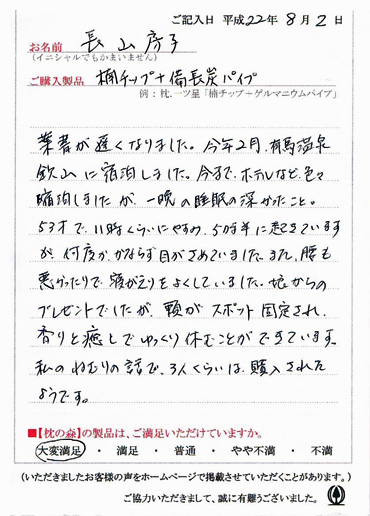 ご記入日 平成22年 8月2日
お名前 長山房子
(イニシャルでもかまいません)
ご購入製品 楠チップ+備長炭パイプ
例:枕.一ツ星「楠チップ+ゲルマニウムパイプ」
葉書が遅くなりました。今年2月、有馬温泉
欽山に宿泊しました。今まで、ホテルなど、色々
宿泊しましたが、一晩の睡眠の深かったこと。
53才で、11時くらいにやすみ、5時半に起きています
が、何度か、かならず目がさめていました。また、腰も
悪かったりで寝がえりをよくしていました。娘からの
プレゼントでしたが、頭がスポット固定され、
香りと癒しでゆっくり休むことができています。
私のねむりの話で、3人くらいは、購入された
ようです。
■【枕の森】の製品は、ご満足いただけていますか。
大変満足 ・ 満足 ・ 普通 ・ やや不満 ・ 不満
(いただきましたお客様の声をホームページで掲載させていただくことがあります。)
ご協力いただきまして、誠に有難うございました。